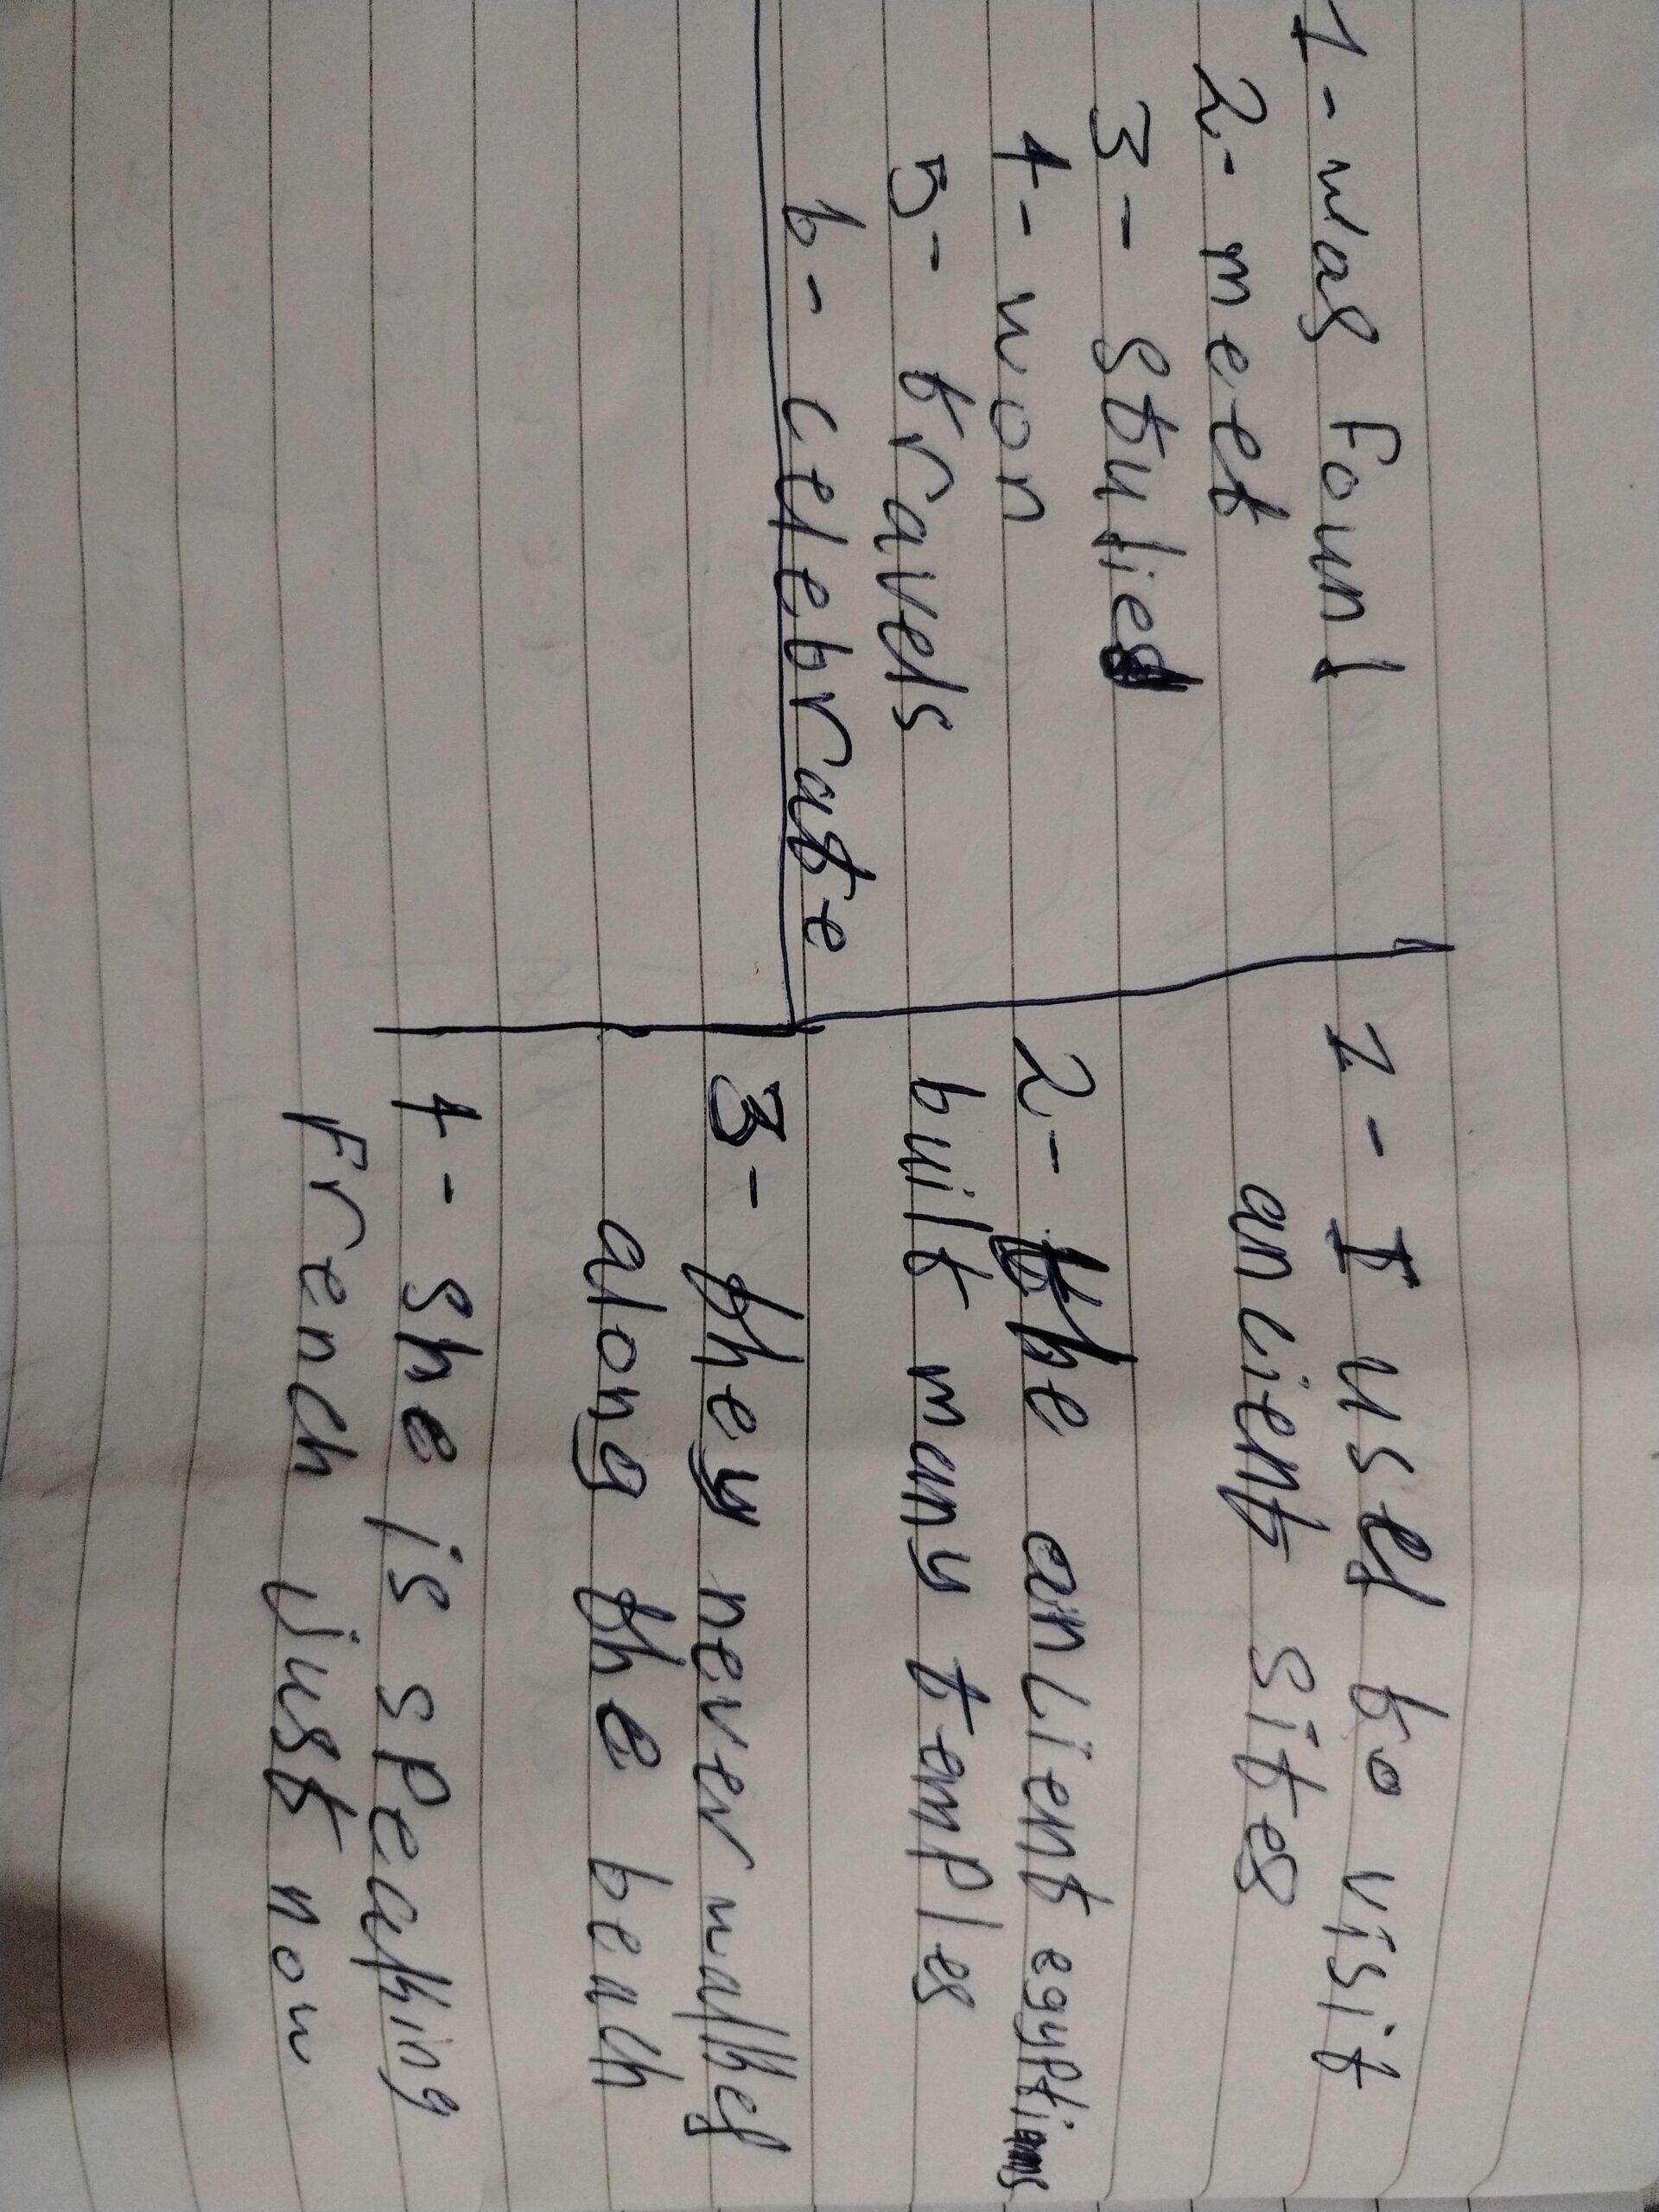 1 - was found
2 - met
3 - studied
4 - won
5 - travels
6 - celebrate
1 - I used to visit
ancient sites
2 - the ancient egyptians
built many temples
3 - they never walked
along the beach
4 - She is speaking
French just now